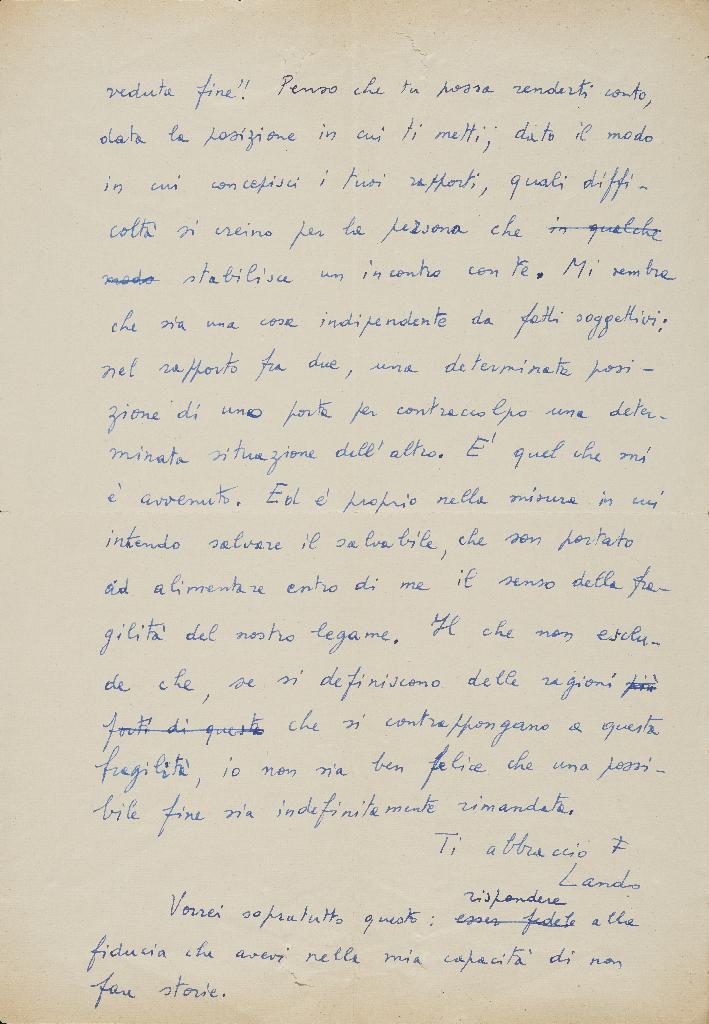 veduta fine!! Penso che tu possa renderti conto,
data la posizione in cui ti metti, dato il modo
in cui concepisci i tuoi rapporti, quali diffi-
coltà si creino per la persona che in qualche
modo stabilisce un incontro con te. Mi sembra
che sia una cosa indipendente da fatti soggettivi:
nel rapporto fra due, una determinata posi-
zione di uno porta per contraccolpo una deter-
minata situazione dell'altro. E' quel che mi
è avvenuto. Ed è proprio nella misura in cui
intendo salvare il salvabile, che son portato
ad alimentare entro di me il senso della fra-
gilità del nostro legame. Il che non esclu-
de che, se si definiscono delle ragioni più
forti di questa che si contrappongano a questa
fragilità, io non sia ben felice che una possi-
bile fine sia indefinitamente rimandata.
Ti abbraccio
Lando
rispondere
Vorrei sopratutto questo: esser fedele alla
fiducia che avevi nella mia capacità di non
fare storie.